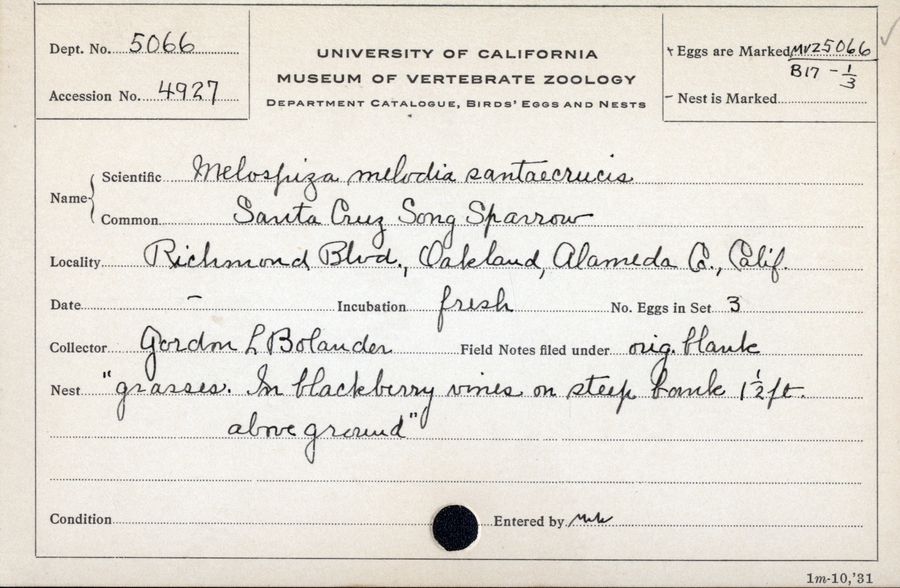 Dept. No. 5066
Accession No. 4927
UNIVERSITY OF CALIFORNIA
MUSEUM OF VERTEBRATE ZOOLOGY
DEPARTMENT CATALOGUE, BIRDS' EGGS AND NESTS
+ Eggs are Marked MVZ5066
B17 - 1/3
- Nest is Marked
Name { Scientific Melospiza melodia santaecrucis
Common Santa Cruz Song Sparrow
Locality Richmond Blvd., Oakland, Alameda Co., Calif.
Date - Incubation fresh No. Eggs in Set 3
Collector Gordon L Bolander Field Notes filed under orig. blank
Nest "grasses. In blackberry vines on steep bank 1 1/2 ft.
above ground"
Condition Entered by
1m-10,'31